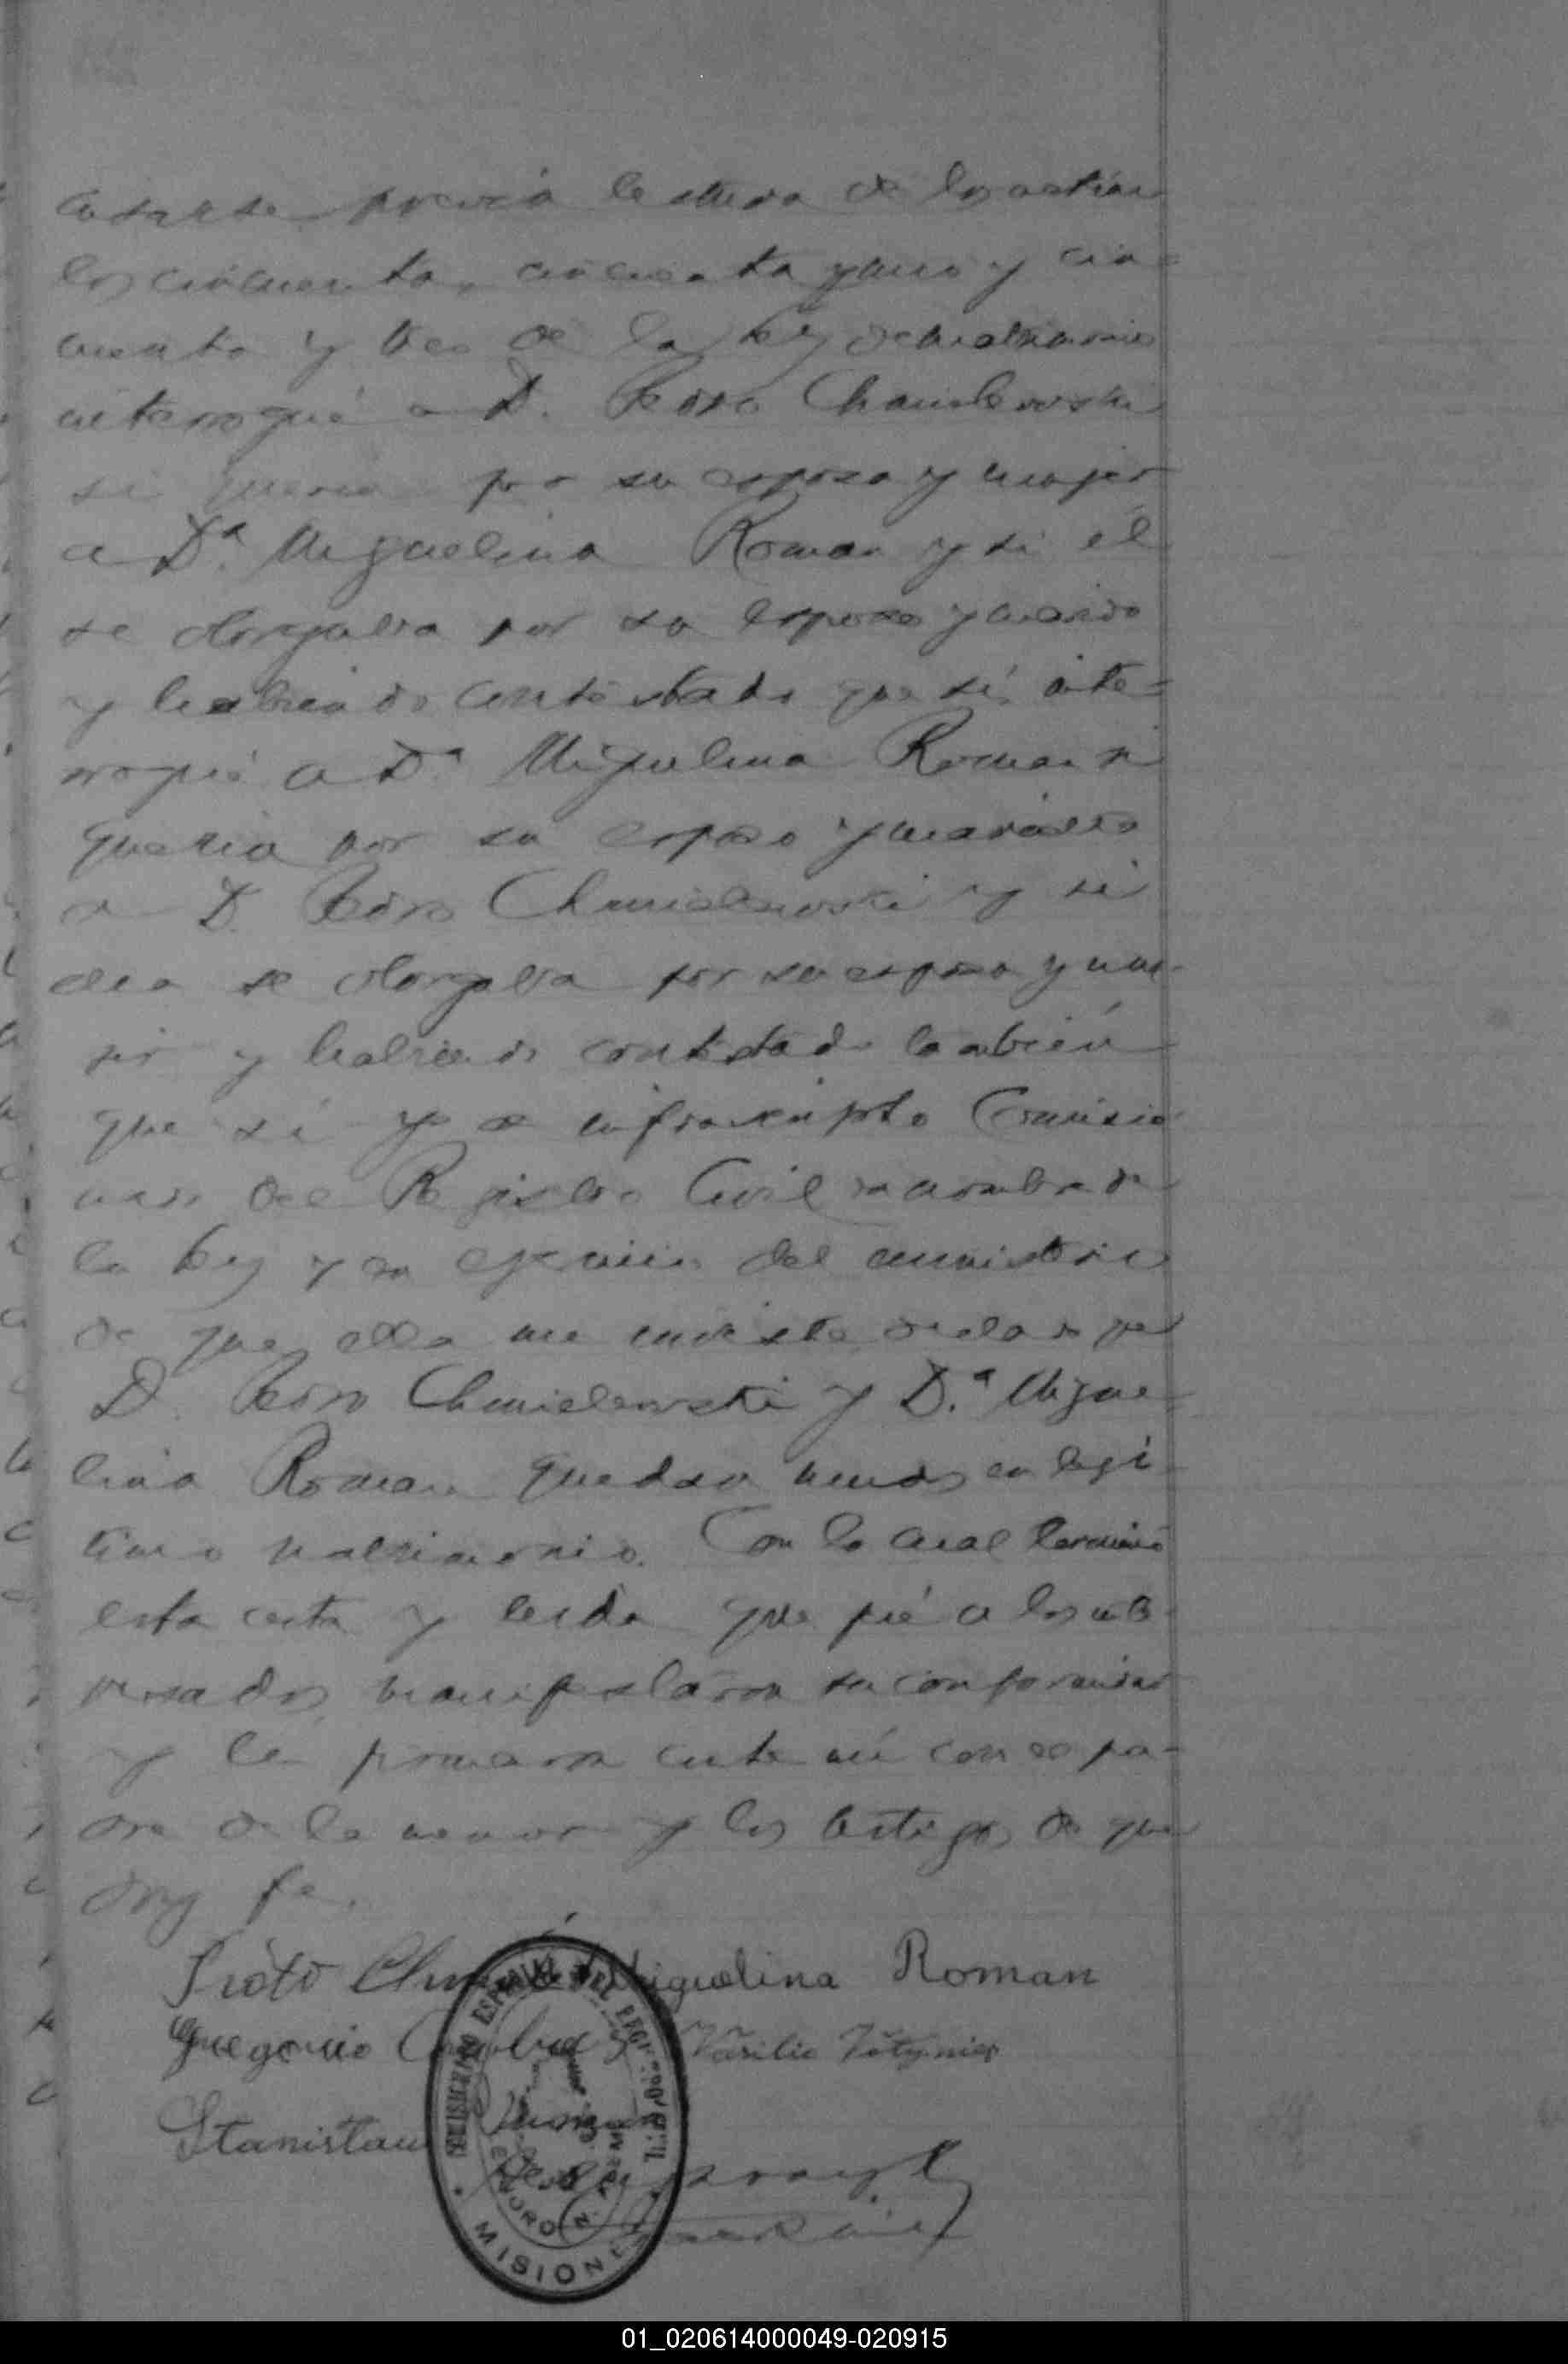 casarse previa lectura de los artícu
los cincuenta, cincuenta y uno y cin=
cuenta y tres de la ley de matrimonio
interrogué a D. Pedro Chmielewski
si queria por su esposa y mujer
a Dª. Miguelina Roman y si él
se otorgaba por su esposo y marido
y habiendo contestado que sí, inte=
rrogué a Dª Miguelina Roman si
queria por su esposo y marido
a D. Pedro Chmielewski y si
ella se otorgaba por su esposa y mu-
jer y habiendo contestado tambien
que sí yo el infrascripto Comisio
nado del Registro Civil en nombre de
la ley y en ejercicio del ministerio
de que ella me inviste declaro que
D. Pedro Chmielewski y D.ª Migue=
lina Roman quedan unidos en legi-
timo matrimonio. Con lo cual terminó
esta acta y leida que fué a los inte-
resados, manifestaron su conformidad
y la firmaron ante mí con el pa-
dre de la menor y los testigos de que
doy fe.
Miguelina Roman
Gregorio Vasilio
Stanisław Roman
DEL REGISTRO CIVIL
MISIONES
01_020614000049-020915